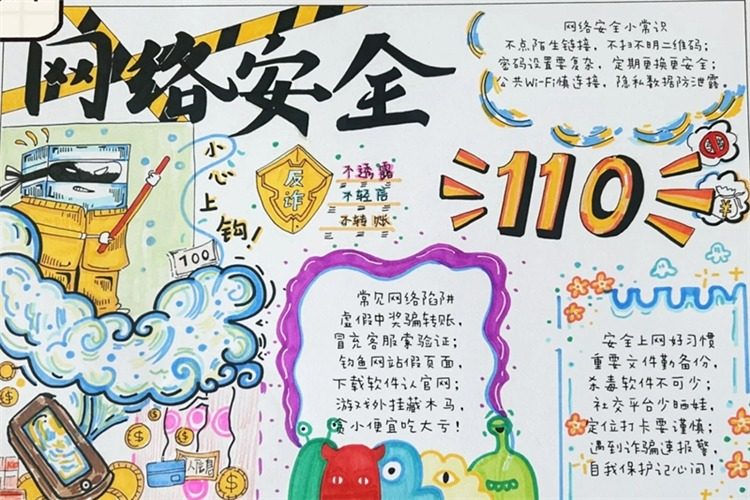 网络安全
网络安全小常识
不点陌生链接，不扫不明二维码；
密码设置要复杂，定期更换更安全；
公共Wi-Fi慎连接，隐私数据防泄露。
小心上钩！
100
反诈
不透露
不轻信
不转账
110
¥
常见网络陷阱
虚假中奖骗转账，
冒充客服索验证；
钓鱼网站假页面，
下载软件认官网；
游戏外挂藏木马，
贪小便宜吃大亏！
安全上网好习惯
重要文件勤备份，
杀毒软件不可少；
社交平台少晒娃，
定位打卡要谨慎；
遇到诈骗速报警，
自我保护记心间！